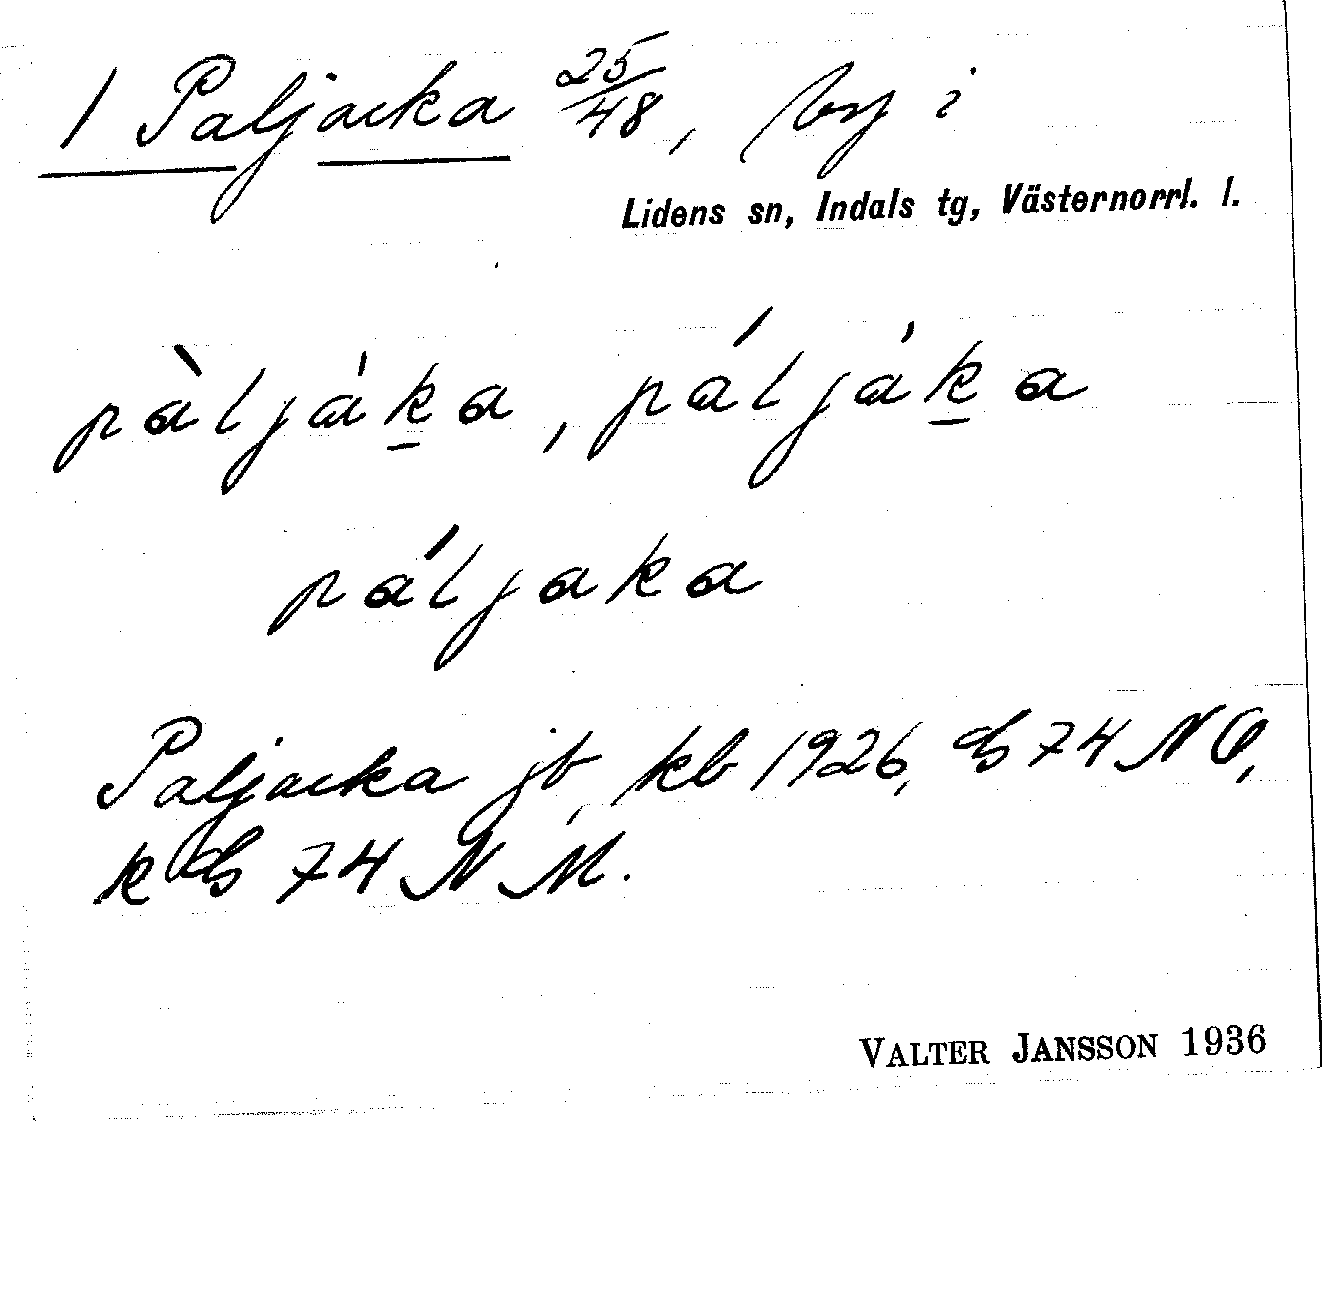 1 Paljacka 25/48, by i
Lidens sn, Indals tg, Västernorrl. l.
pàljáka, páljáka
páljaka
Paljacka jb, kb 1926, eb 74 NO,
keb 74 N M.
VALTER JANSSON 1936